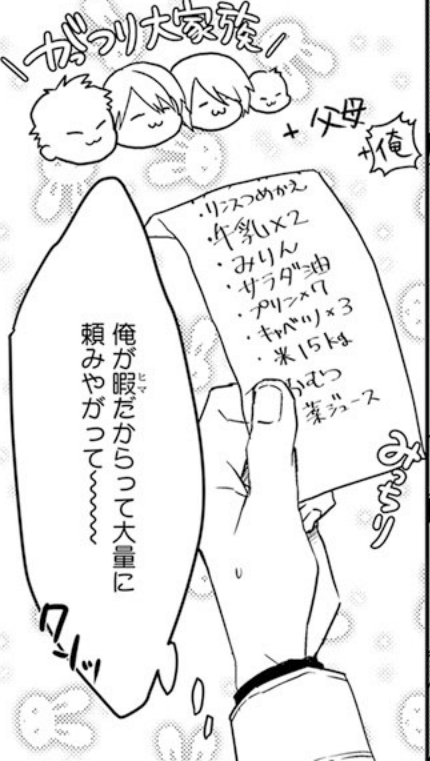 がっつり大家族
+ 父母
+俺
・リンスつめかえ
・牛乳×2
・みりん
・サラダ油
・プリン×7
・キャベツ×3
・米15kg
おむつ
薬ジュース
みっちり
俺が暇だからって大量に
ヒマ
頼みやがって〜〜〜〜